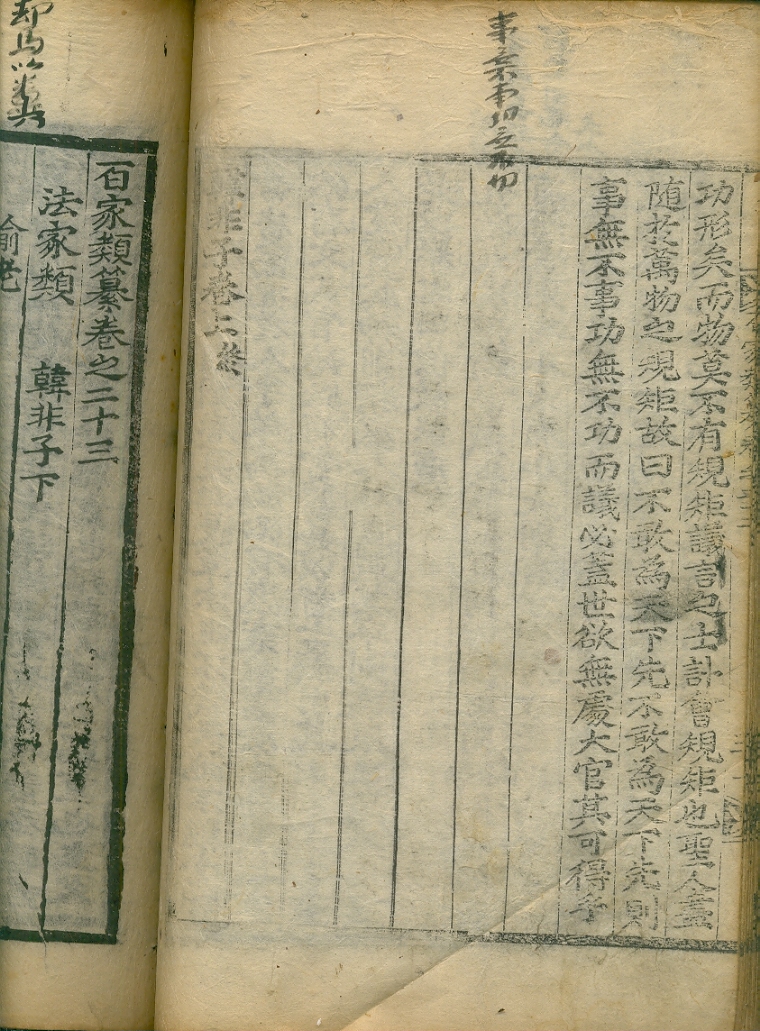 事無不事功無不功
功形矣而物莫不有規矩議言之士計會規矩也聖人盡
随於萬物之規矩故曰不敢為天下先不敢為天下先則
事無不事功無不功而議必蓋世欲無處大官其可得乎
韓非子卷上終
却馬以糞
百家類纂卷之二十三
法家類 韓非子下
喻老